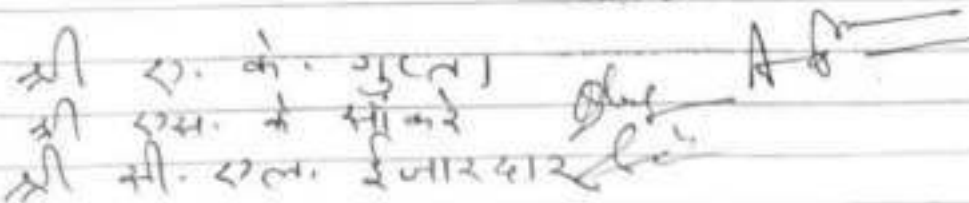 श्री ए. के. गुप्ता
श्री एस. के सोकरे
श्री सी. एल. ईजारदार